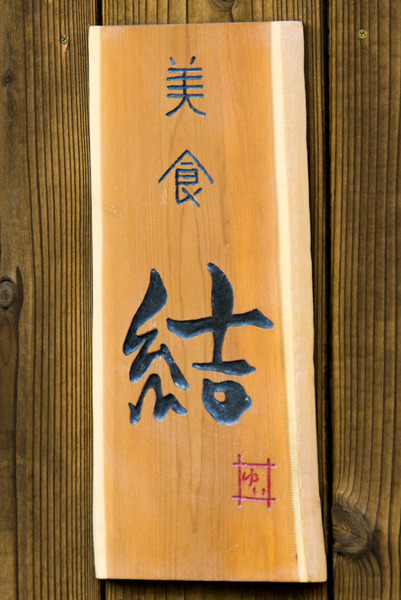 美食
結
ゆい